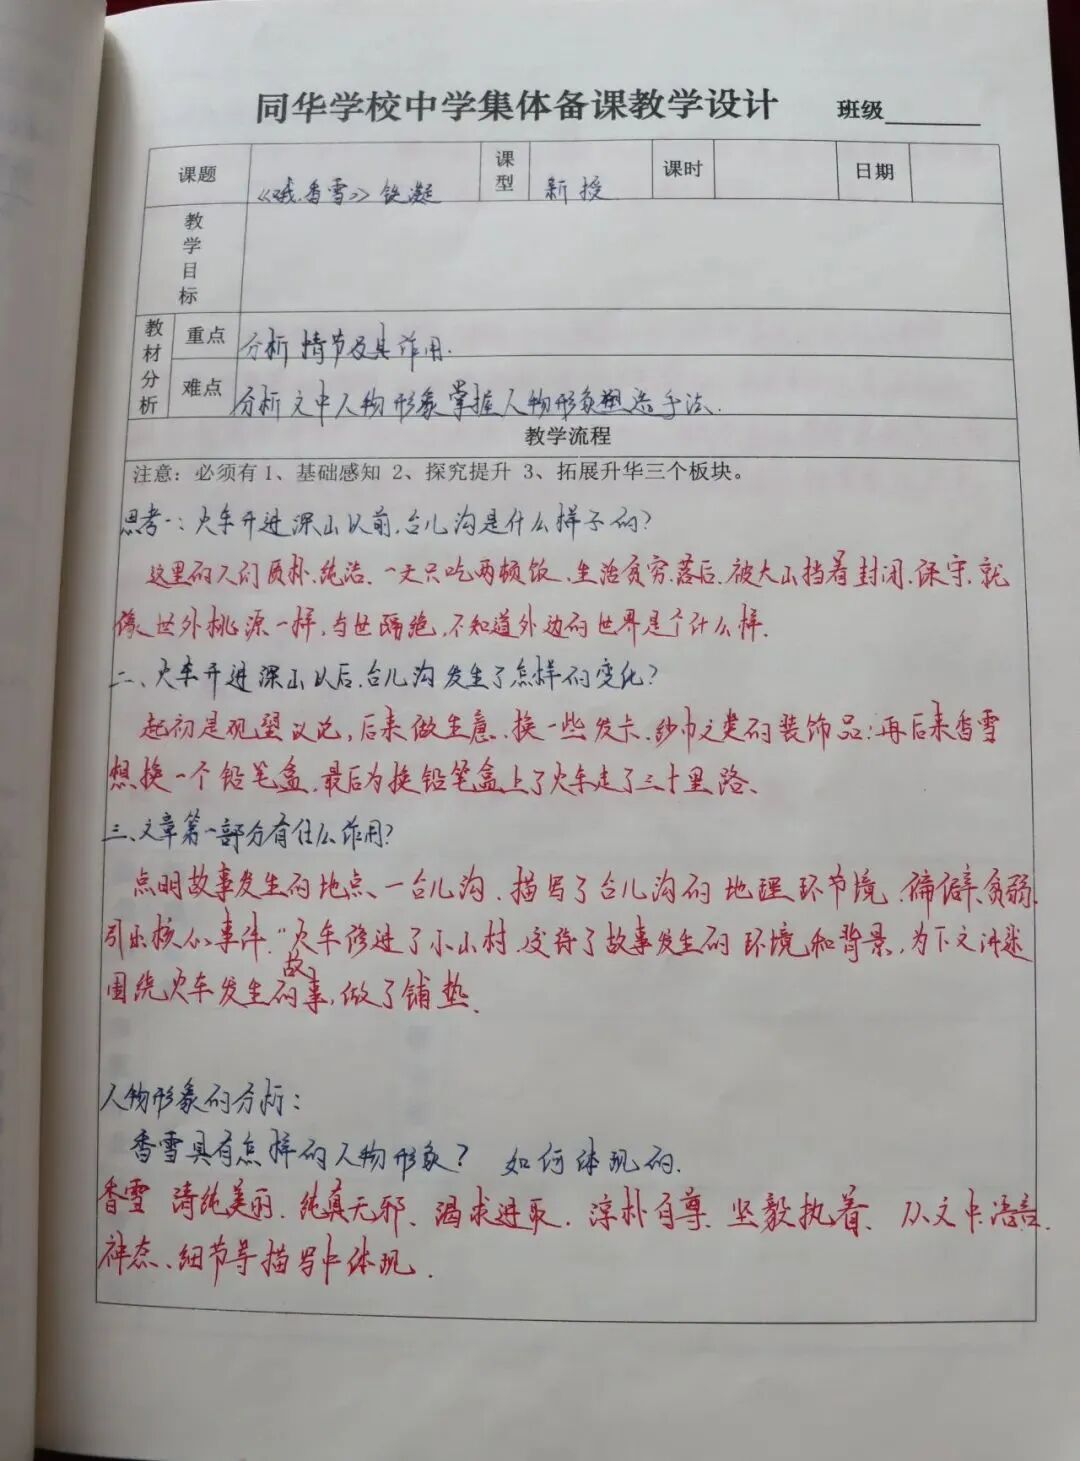 同华学校中学集体备课教学设计 班级
课题 《哦，香雪》铁凝 课型 新授 课时 日期
教学目标
教材分析 重点 分析情节及其作用.
难点 分析文中人物形象掌握人物形象塑造手法.
教学流程
注意：必须有 1、基础感知 2、探究提升 3、拓展升华三个板块。
思考一：火车开进深山以前,台儿沟是什么样子的?
这里的人们质朴、纯洁、一天只吃两顿饭、生活贫穷、落后、被大山挡着封闭、保守、就
像世外桃源一样,与世隔绝,不知道外边的世界是个什么样.
二、火车开进深山以后,台儿沟发生了怎样的变化?
起初是观望议论,后来做生意、换一些发卡、纱巾之类的装饰品;再后来香雪
想换一个铅笔盒,最后为换铅笔盒上了火车走了三十里路、
三、文章第一部分有什么作用?
点明故事发生的地点、一台儿沟、描写了台儿沟的地理环节境、偏僻、贫弱,
引出核心事件,"火车修进了小山村,交待了故事发生的环境和背景,为下文讲述
围绕火车发生的故事,做了铺垫.
人物形象的分析:
香雪具有怎样的人物形象? 如何体现的.
香雪 清纯美丽、纯真无邪、渴求进取、淳朴自尊、坚毅执着、从文中语言、
神态、细节等描写中体现.